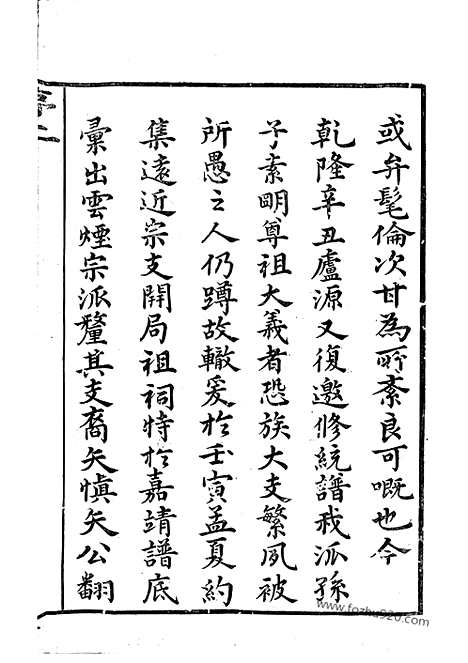 或弁髦倫次甘為所紊良可嘅也今
乾隆辛丑廬源又復邀修統譜我派孫
子素明尊祖大義者恐族大支繁夙被
所愚之人仍蹲故轍爰於壬寅孟夏約
集遠近宗支開局祖祠特於嘉靖譜底
彙出雲煙宗派釐其支裔矢慎矢公翻
序二
www.fozhu920.com